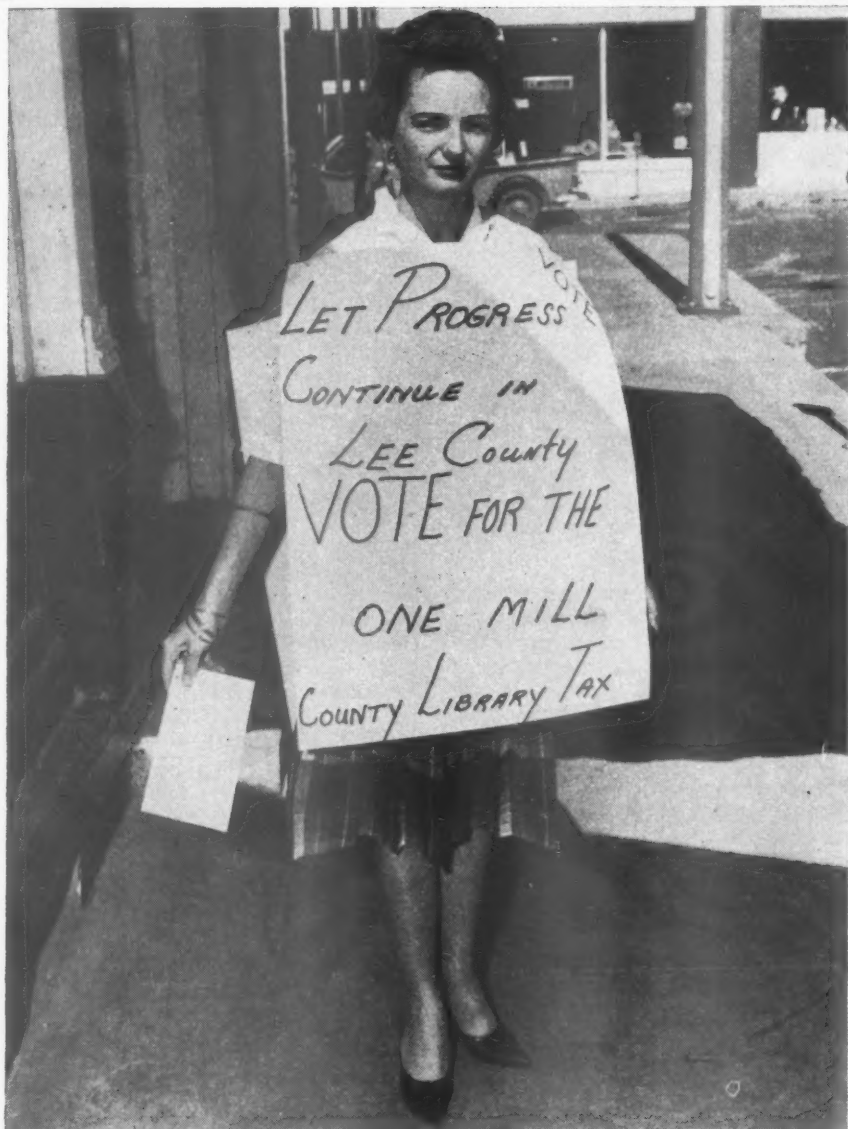 LET PROGRESS
CONTINUE IN
LEE COUNTY
VOTE FOR THE
ONE MILL
COUNTY LIBRARY TAX
VOTE